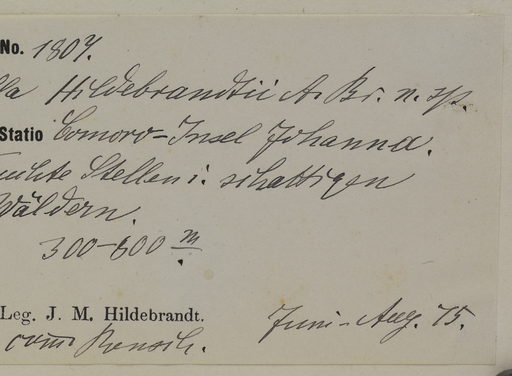 No. 1807.
lla Hildebrandtii A. Br. n. sp.
Statio Comoro-Insel Johanna.
uchte Stellen i. schattigen
Wäldern.
300-600 m
Leg. J. M. Hildebrandt.
Juni-Aug. 75.
comm